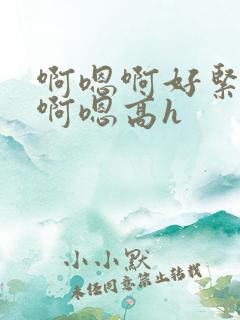 啊嗯啊好緊
啊嗯高h
小小默
未经同意禁止转载